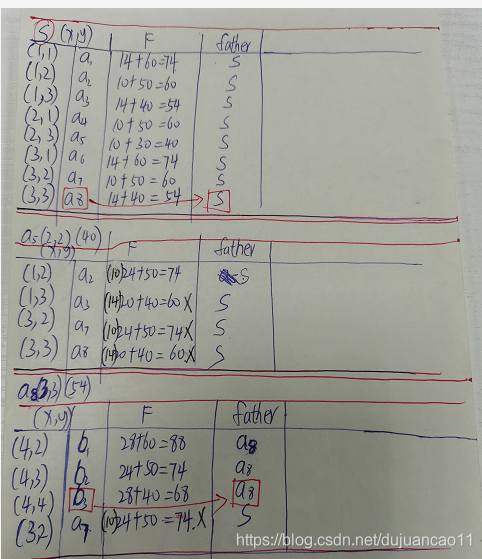 S (x,y) F father
(1,1) a₁ 14+60=74 S
(1,2) a₂ 10+50=60 S
(1,3) a₃ 14+40=54 S
(2,1) a₄ 10+50=60 S
(2,3) a₅ 10+30=40 S
(3,1) a₆ 14+60=74 S
(3,2) a₇ 10+50=60 S
(3,3) a₈ 14+40=54 S
a₅(2,2) (40)
(x,y) F father
(1,2) a₂ (10)24+50=74 S
(1,3) a₃ (14)20+40=60X S
(3,2) a₇ (10)24+50=74X S
(3,3) a₈ (14)20+40=60.X S
a₈(3,3) (54)
(x,y) F father
(4,2) b₁ 28+60=88 a₈
(4,3) b₂ 24+50=74 a₈
(4,4) b₃ 28+40=68 a₈
(3,2) a₇ (10)24+50=74.X S
https://blog.csdn.net/dujuancao11